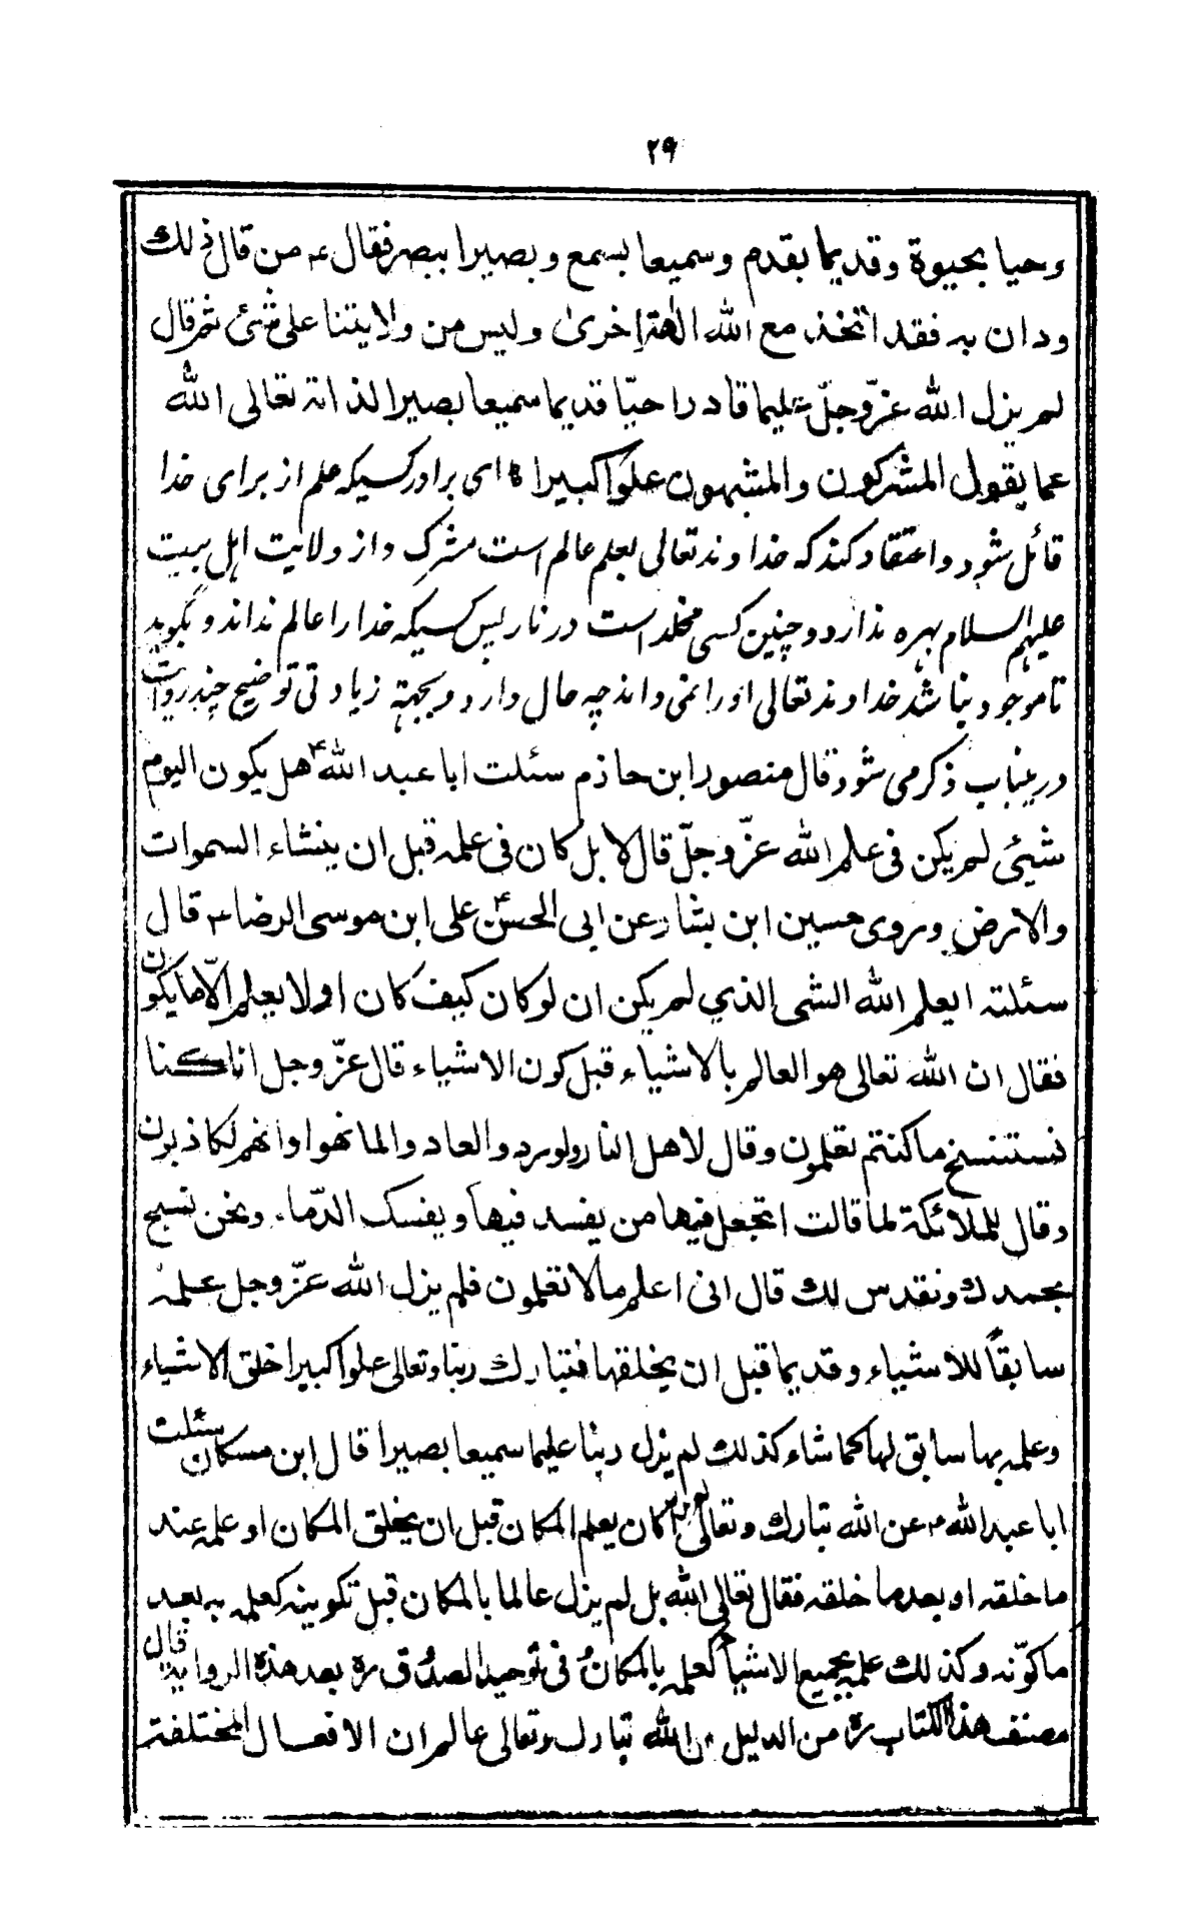 ۲۹
وحیا بحیوة وقدیما بقدم وسمیعا بسمع وبصیرا ببصر فقال ع من قال ذلك
ودان به فقد اتخذ مع الله الهة اخری ولیس من ولایتنا علی شئ ثم قال
لم یزل الله عزّ وجلّ علیما قادرا حیّا قدیما سمیعا بصیرا لذاته تعالی الله
عما یقول المشرکون والمشبهون علوّا کبیرا ای برادر کسیکه علم از برای خدا
قائل شود و اعتقاد کند که خداوند تعالی بعلم عالم است مشرک و از ولایت اهل بیت
علیهم السلام بهره ندارد و چنین کسی مخلد است در نار پس کسیکه خدا را عالم نداند و بگوید
تا موجود نباشد خداوند تعالی او را نمی داند چه حال دارد و بجهة زیادتی توضیح چند روایت
در ینباب ذکر می شود قال منصور ابن حازم سئلت ابا عبد الله ع هل یکون الیوم
شیئی لم یکن فی علم الله عزّ وجلّ قال لا بل کان فی علمه قبل ان ینشاء السموات
والارض وروی حسین ابن بشار عن ابی الحسن علی ابن موسی الرضا ع قال
سئلته ایعلم الله الشی الذي لم یکن ان لو کان کیف کان او لا یعلم الّا ما یکون
فقال ان الله تعالی هو العالم بالاشیاء قبل کون الاشیاء قال عزّ وجل انا کنا
نستنسخ ما کنتم تعلمون وقال لاهل النار ولو رد والعاد والما نهوا وانهم لکاذبون
وقال للملائکة لما قالت اتجعل فیها من یفسد فیها ویفسک الدّماء ونحن نسبح
بحمدك ونقدس لك قال انی اعلم مالا تعلمون فلم یزل الله عزّ وجل علمه
سابقاً للاشیاء وقدیما قبل ان یخلقها فتبارك ربنا وتعالی علوا کبیرا خلق الاشیاء
وعلمه بها سابق لها کما شاء کذلك لم یزل ربنا علیما سمیعا بصیرا قال ابن مسکان سئلت
ابا عبد الله ع عن الله تبارك وتعالی کان یعلم المکان قبل ان یخلق المکان او علمه عند
ما خلقه او بعد ما خلقه فقال تعالی الله بل لم یزل عالما بالمکان قبل تکوینه کعلمه به بعد
ما کوّنه وکذلك علمه بجمیع الاشیاء کعلمه بالمکان فی توحید الصدوق ره بعد هذه الروایة قال
مصنف هذا الکتاب ره من الدلیل الله تبارك وتعالی عالم ان الافعال المختلفة